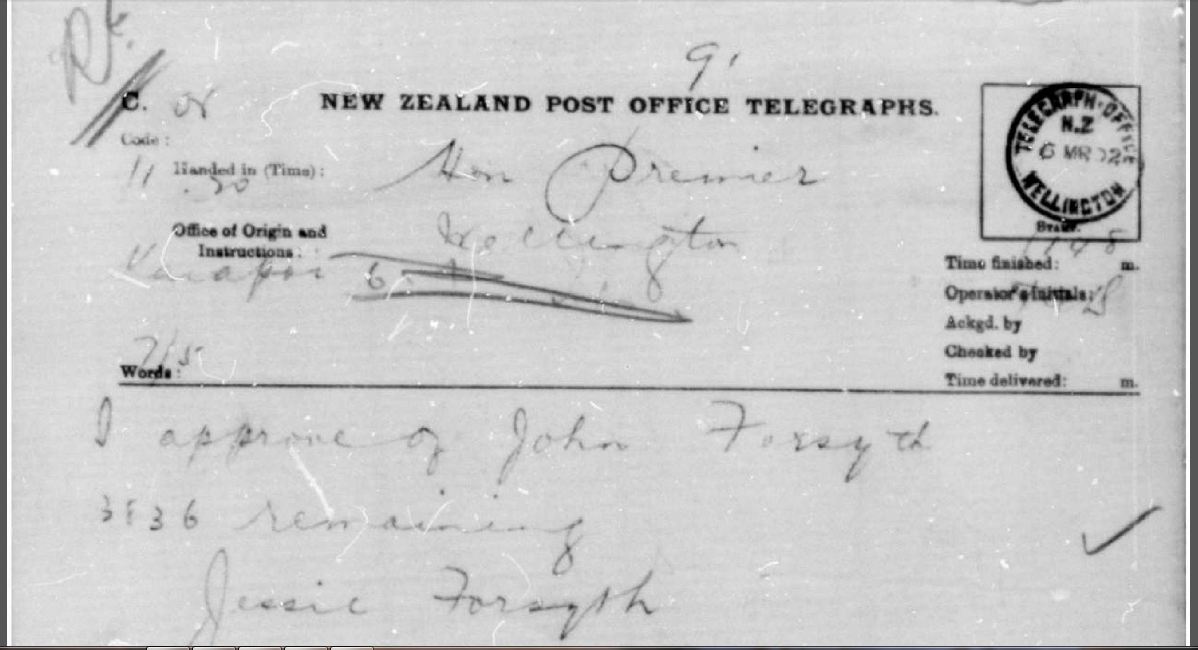 9'
C. OR
NEW ZEALAND POST OFFICE TELEGRAPHS.
Code:
11.30 Handed in (Time):
Hon Premier
Office of Origin and
Instructions:
Wellington
Kaiapoi
TELEGRAPH-OFFICE
N.Z
6 MR 02
WELLINGTON
STAMP.
Time finished: 1148 m.
Operator's Initials:
Ackgd. by
Checked by
Time delivered: m.
Words:
I approve of John Forsyth
3836 remaining
Jessie Forsyth